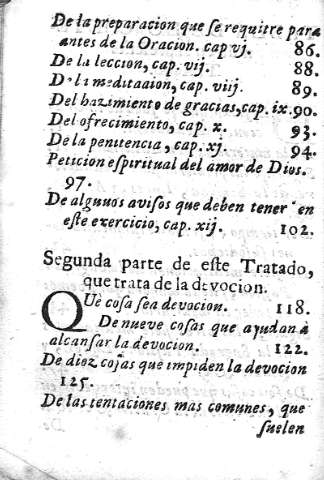 De la preparacion que se requitre para
antes de la Oracion. cap vj. 86.
De la leccion, cap. vij. 88.
De la meditaaion, cap. viij. 89.
Del hazimiento de gracias, cap. ix. 90.
Del ofrecimiento, cap. x. 93.
De la penitencia, cap. xj. 94.
Peticion espiritual del amor de Dios.
97.
De algnuos avisos que deben tener en
este exercicio, cap. xij. 102.
Segunda parte de este Tratado,
que trata de la devocion.
QUe cosa sea devocion. 118.
De nueve cosas que ayudan à
alcansar la devocion. 122.
De diez cosas que impiden la devocion
125.
De las tentaciones mas comunes, que
suelen